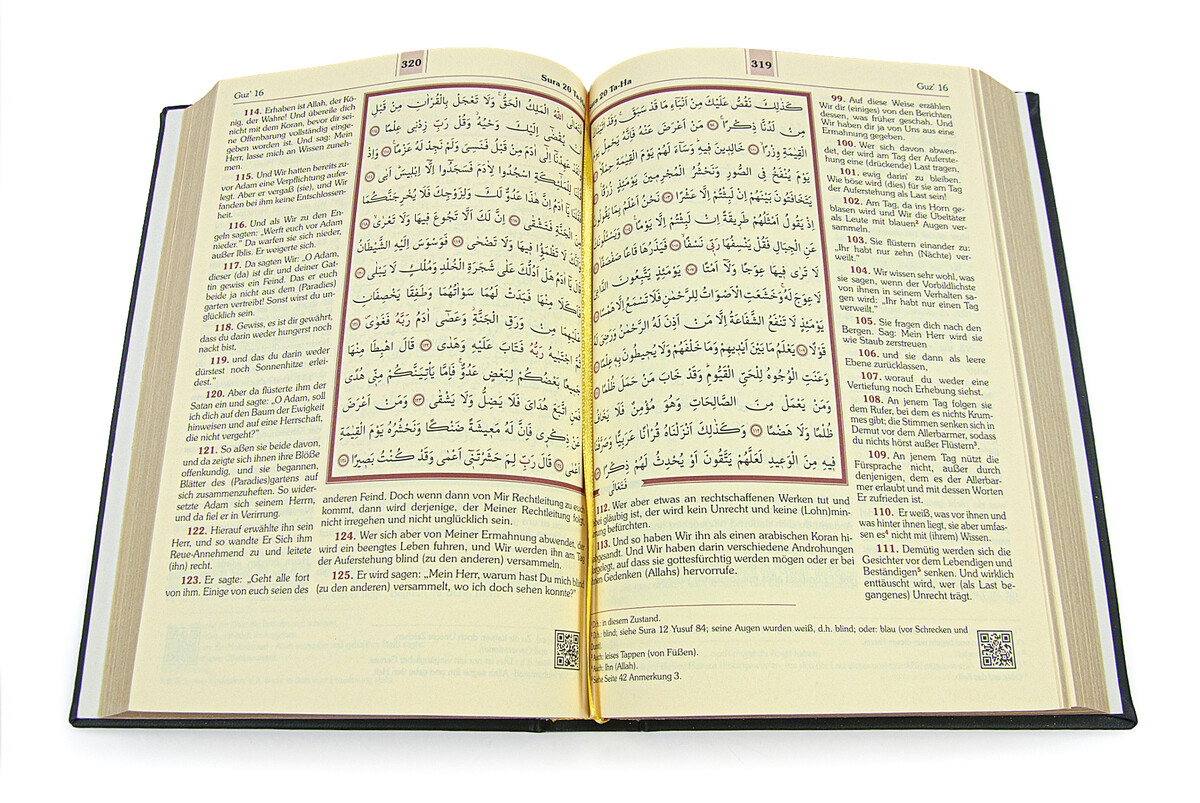 319
Sura 20 Ta-Ha
Guz´ 16
كَذٰلِكَ نَقُصُّ عَلَيْكَ مِنْ اَنْبَٓاءِ مَا قَدْ سَبَقَۚ وَقَدْ
مِنْ لَدُنَّا ذِكْرًاۚ ﴿٩٩﴾ مَنْ اَعْرَضَ عَنْهُ فَاِنَّهُ يَحْمِلُ
الْقِيٰمَةِ وِزْرًاۙ ﴿١٠٠﴾ خَالِدِينَ فِيهِ وَسَٓاءَ لَهُمْ يَوْمَ الْقِيٰمَةِ حِمْلًاۙ
يَوْمَ يُنْفَخُ فِي الصُّورِ وَنَحْشُرُ الْمُجْرِمِينَ يَوْمَئِذٍ زُرْقًاۚ
يَتَخَافَتُونَ بَيْنَهُمْ اِنْ لَبِثْتُمْ اِلَّا عَشْرًا ﴿١٠٣﴾ نَحْنُ اَعْلَمُ بِمَا
اِذْ يَقُولُ اَمْثَلُهُمْ طَرِيقَةً اِنْ لَبِثْتُمْ اِلَّا يَوْمًا۟ ﴿١٠٤﴾ وَيَسْـَٔلُونَكَ
عَنِ الْجِبَالِ فَقُلْ يَنْسِفُهَا رَبِّي نَسْفًاۙ ﴿١٠٥﴾ فَيَذَرُهَا قَاعًا صَفْصَفًاۙ
لَا تَرٰى فِيهَا عِوَجًا وَلَٓا اَمْتًاۜ ﴿١٠٧﴾ يَوْمَئِذٍ يَتَّبِعُونَ الدَّاعِيَ
لَا عِوَجَ لَهُۚ وَخَشَعَتِ الْاَصْوَاتُ لِلرَّحْمٰنِ فَلَا تَسْمَعُ اِلَّا هَمْسًا
يَوْمَئِذٍ لَا تَنْفَعُ الشَّفَاعَةُ اِلَّا مَنْ اَذِنَ لَهُ الرَّحْمٰنُ وَرَضِيَ لَهُ
قَوْلًا ﴿١٠٩﴾ يَعْلَمُ مَا بَيْنَ اَيْدِيهِمْ وَمَا خَلْفَهُمْ وَلَا يُحِيطُونَ بِهِ عِلْمًا
وَعَنَتِ الْوُجُوهُ لِلْحَيِّ الْقَيُّومِۜ وَقَدْ خَابَ مَنْ حَمَلَ ظُلْمًا
وَمَنْ يَعْمَلْ مِنَ الصَّالِحَاتِ وَهُوَ مُؤْمِنٌ فَلَا يَخَافُ
ظُلْمًا وَلَا هَضْمًا ﴿١١٢﴾ وَكَذٰلِكَ اَنْزَلْنَاهُ قُرْاٰنًا عَرَبِيًّا وَصَرَّفْنَا
فِيهِ مِنَ الْوَعِيدِ لَعَلَّهُمْ يَتَّقُونَ اَوْ يُحْدِثُ لَهُمْ ذِكْرًا
فَتَعَالَى
99. Auf diese Weise erzählen
Wir dir (einiges) von den Berichten
dessen, was früher geschah. Und
Wir haben dir ja von Uns aus eine
Ermahnung gegeben.
100. Wer sich davon abwen-
det, der wird am Tag der Auferste-
hung eine (drückende) Last tragen,
101. ewig darin¹ zu bleiben.
Wie böse wird (dies) für sie am Tag
der Auferstehung als Last sein!
102. Am Tag, da ins Horn ge-
blasen wird und Wir die Übeltäter
als Leute mit blauen² Augen ver-
sammeln.
103. Sie flüstern einander zu:
„Ihr habt nur zehn (Nächte) ver-
weilt.“
104. Wir wissen sehr wohl, was
sie sagen, wenn der Vorbildlichste
von ihnen in seinem Verhalten sa-
gen wird: „Ihr habt nur einen Tag
verweilt.“
105. Sie fragen dich nach den
Bergen. Sag: Mein Herr wird sie
wie Staub zerstreuen
106. und sie dann als leere
Ebene zurücklassen,
107. worauf du weder eine
Vertiefung noch Erhebung siehst.
108. An jenem Tag folgen sie
dem Rufer, bei dem es nichts Krum-
mes gibt; die Stimmen senken sich in
Demut vor dem Allerbarmer, sodass
du nichts hörst außer Flüstern³.
109. An jenem Tag nützt die
Fürsprache nicht, außer durch
denjenigen, dem es der Allerbar-
mer erlaubt und mit dessen Worten
Er zufrieden ist.
110. Er weiß, was vor ihnen und
was hinter ihnen liegt, sie aber umfas-
sen es⁴ nicht mit (ihrem) Wissen.
111. Demütig werden sich die
Gesichter vor dem Lebendigen und
Beständigen⁵ senken. Und wirklich
enttäuscht wird, wer (als Last be-
gangenes) Unrecht trägt.
112. Wer aber etwas an rechtschaffenen Werken tut und
dabei gläubig ist, der wird kein Unrecht und keine (Lohn)min-
derung befürchten.
113. Und so haben Wir ihn als einen arabischen Koran hi-
nabgesandt. Und Wir haben darin verschiedene Androhungen
dargelegt, auf dass sie gottesfürchtig werden mögen oder er bei
ihnen Gedenken (Allahs) hervorrufe.
¹ D.h.: in diesem Zustand.
² D.h.: blind; siehe Sura 12 Yusuf 84; seine Augen wurden weiß, d.h. blind; oder: blau (vor Schrecken und
Durst.
³ Auch: leises Tappen (von Füßen).
⁴ Auch: Ihn (Allah).
⁵ Siehe Seite 42 Anmerkung 3.
320
Sura 20 Ta-Ha
Guz´ 16
فَتَعَالَى اللّٰهُ الْمَلِكُ الْحَقُّۚ وَلَا تَعْجَلْ بِالْقُرْاٰنِ مِنْ قَبْلِ
اَنْ يُقْضٰٓى اِلَيْكَ وَحْيُهُۘ وَقُلْ رَبِّ زِدْنِي عِلْمًا ﴿١١٤﴾
وَلَقَدْ عَهِدْنَٓا اِلٰٓى اٰدَمَ مِنْ قَبْلُ فَنَسِيَ وَلَمْ نَجِدْ لَهُ عَزْمًا۟ ﴿١١٥﴾ وَاِذْ
قُلْنَا لِلْمَلٰٓئِكَةِ اسْجُدُوا لِاٰدَمَ فَسَجَدُٓوا اِلَّٓا اِبْلِيسَۜ اَبٰى ﴿١١٦﴾
فَقُلْنَا يَٓا اٰدَمُ اِنَّ هٰذَا عَدُوٌّ لَكَ وَلِزَوْجِكَ فَلَا يُخْرِجَنَّكُمَا
مِنَ الْجَنَّةِ فَتَشْقٰى ﴿١١٧﴾ اِنَّ لَكَ اَلَّا تَجُوعَ فِيهَا وَلَا تَعْرٰىۙ ﴿١١٨﴾
وَاَنَّكَ لَا تَظْمَؤُ۬ا فِيهَا وَلَا تَضْحٰى ﴿١١٩﴾ فَوَسْوَسَ اِلَيْهِ الشَّيْطَانُ
قَالَ يَٓا اٰدَمُ هَلْ اَدُلُّكَ عَلٰى شَجَرَةِ الْخُلْدِ وَمُلْكٍ لَا يَبْلٰى ﴿١٢٠﴾
فَاَكَلَا مِنْهَا فَبَدَتْ لَهُمَا سَوْاٰتُهُمَا وَطَفِقَا يَخْصِفَانِ
عَلَيْهِمَا مِنْ وَرَقِ الْجَنَّةِۘ وَعَصٰٓى اٰدَمُ رَبَّهُ فَغَوٰىۖ ﴿١٢١﴾
ثُمَّ اجْتَبٰيهُ رَبُّهُ فَتَابَ عَلَيْهِ وَهَدٰى ﴿١٢٢﴾ قَالَ اهْبِطَا مِنْهَا
جَمِيعًا بَعْضُكُمْ لِبَعْضٍ عَدُوٌّۚ فَاِمَّا يَأْتِيَنَّكُمْ مِنِّي هُدًى
فَمَنِ اتَّبَعَ هُدَايَ فَلَا يَضِلُّ وَلَا يَشْقٰى ﴿١٢٣﴾ وَمَنْ اَعْرَضَ
عَنْ ذِكْرِي فَاِنَّ لَهُ مَعِيشَةً ضَنْكًا وَنَحْشُرُهُ يَوْمَ الْقِيٰمَةِ
اَعْمٰى ﴿١٢٤﴾ قَالَ رَبِّ لِمَ حَشَرْتَنِٓي اَعْمٰى وَقَدْ كُنْتُ بَصِيرًا ﴿١٢٥﴾
114. Erhaben ist Allah, der Kö-
nig, der Wahre! Und übereile dich
nicht mit dem Koran, bevor dir sei-
ne Offenbarung vollständig einge-
geben worden ist. Und sag: Mein
Herr, lasse mich an Wissen zuneh-
men.
115. Und Wir hatten bereits zu-
vor Adam eine Verpflichtung aufer-
legt. Aber er vergaß (sie), und Wir
fanden bei ihm keine Entschlossen-
heit.
116. Und als Wir zu den En-
geln sagten: „Werft euch vor Adam
nieder.“ Da warfen sie sich nieder,
außer Iblis. Er weigerte sich.
117. Da sagten Wir: „O Adam,
dieser (da) ist dir und deiner Gat-
tin gewiss ein Feind. Das er euch
beide ja nicht aus dem (Paradies)
garten vertreibt! Sonst wirst du un-
glücklich sein.
118. Gewiss, es ist dir gewährt,
dass du darin weder hungerst noch
nackt bist,
119. und das du darin weder
dürstest noch Sonnenhitze erlei-
dest.“
120. Aber da flüsterte ihm der
Satan ein und sagte: „O Adam, soll
ich dich auf den Baum der Ewigkeit
hinweisen und auf eine Herrschaft,
die nicht vergeht?“
121. So aßen sie beide davon,
und da zeigte sich ihnen ihre Blöße
offenkundig, und sie begannen,
Blätter des (Paradies)gartens auf
sich zusammenzuheften. So wider-
setzte Adam sich seinem Herrn,
und da fiel er in Verirrung.
122. Hierauf erwählte ihn sein
Herr, und so wandte Er Sich ihm
Reue-Annehmend zu und leitete
(ihn) recht.
123. Er sagte: „Geht alle fort
von ihm. Einige von euch seien des
anderen Feind. Doch wenn dann von Mir Rechtleitung zu euch
kommt, dann wird derjenige, der Meiner Rechtleitung folgt,
nicht irregehen und nicht unglücklich sein.
124. Wer sich aber von Meiner Ermahnung abwendet, der
wird ein beengtes Leben fuhren, und Wir werden ihn am Tag
der Auferstehung blind (zu den anderen) versammeln.
125. Er wird sagen: „Mein Herr, warum hast Du mich blind
(zu den anderen) versammelt, wo ich doch sehen konnte?“